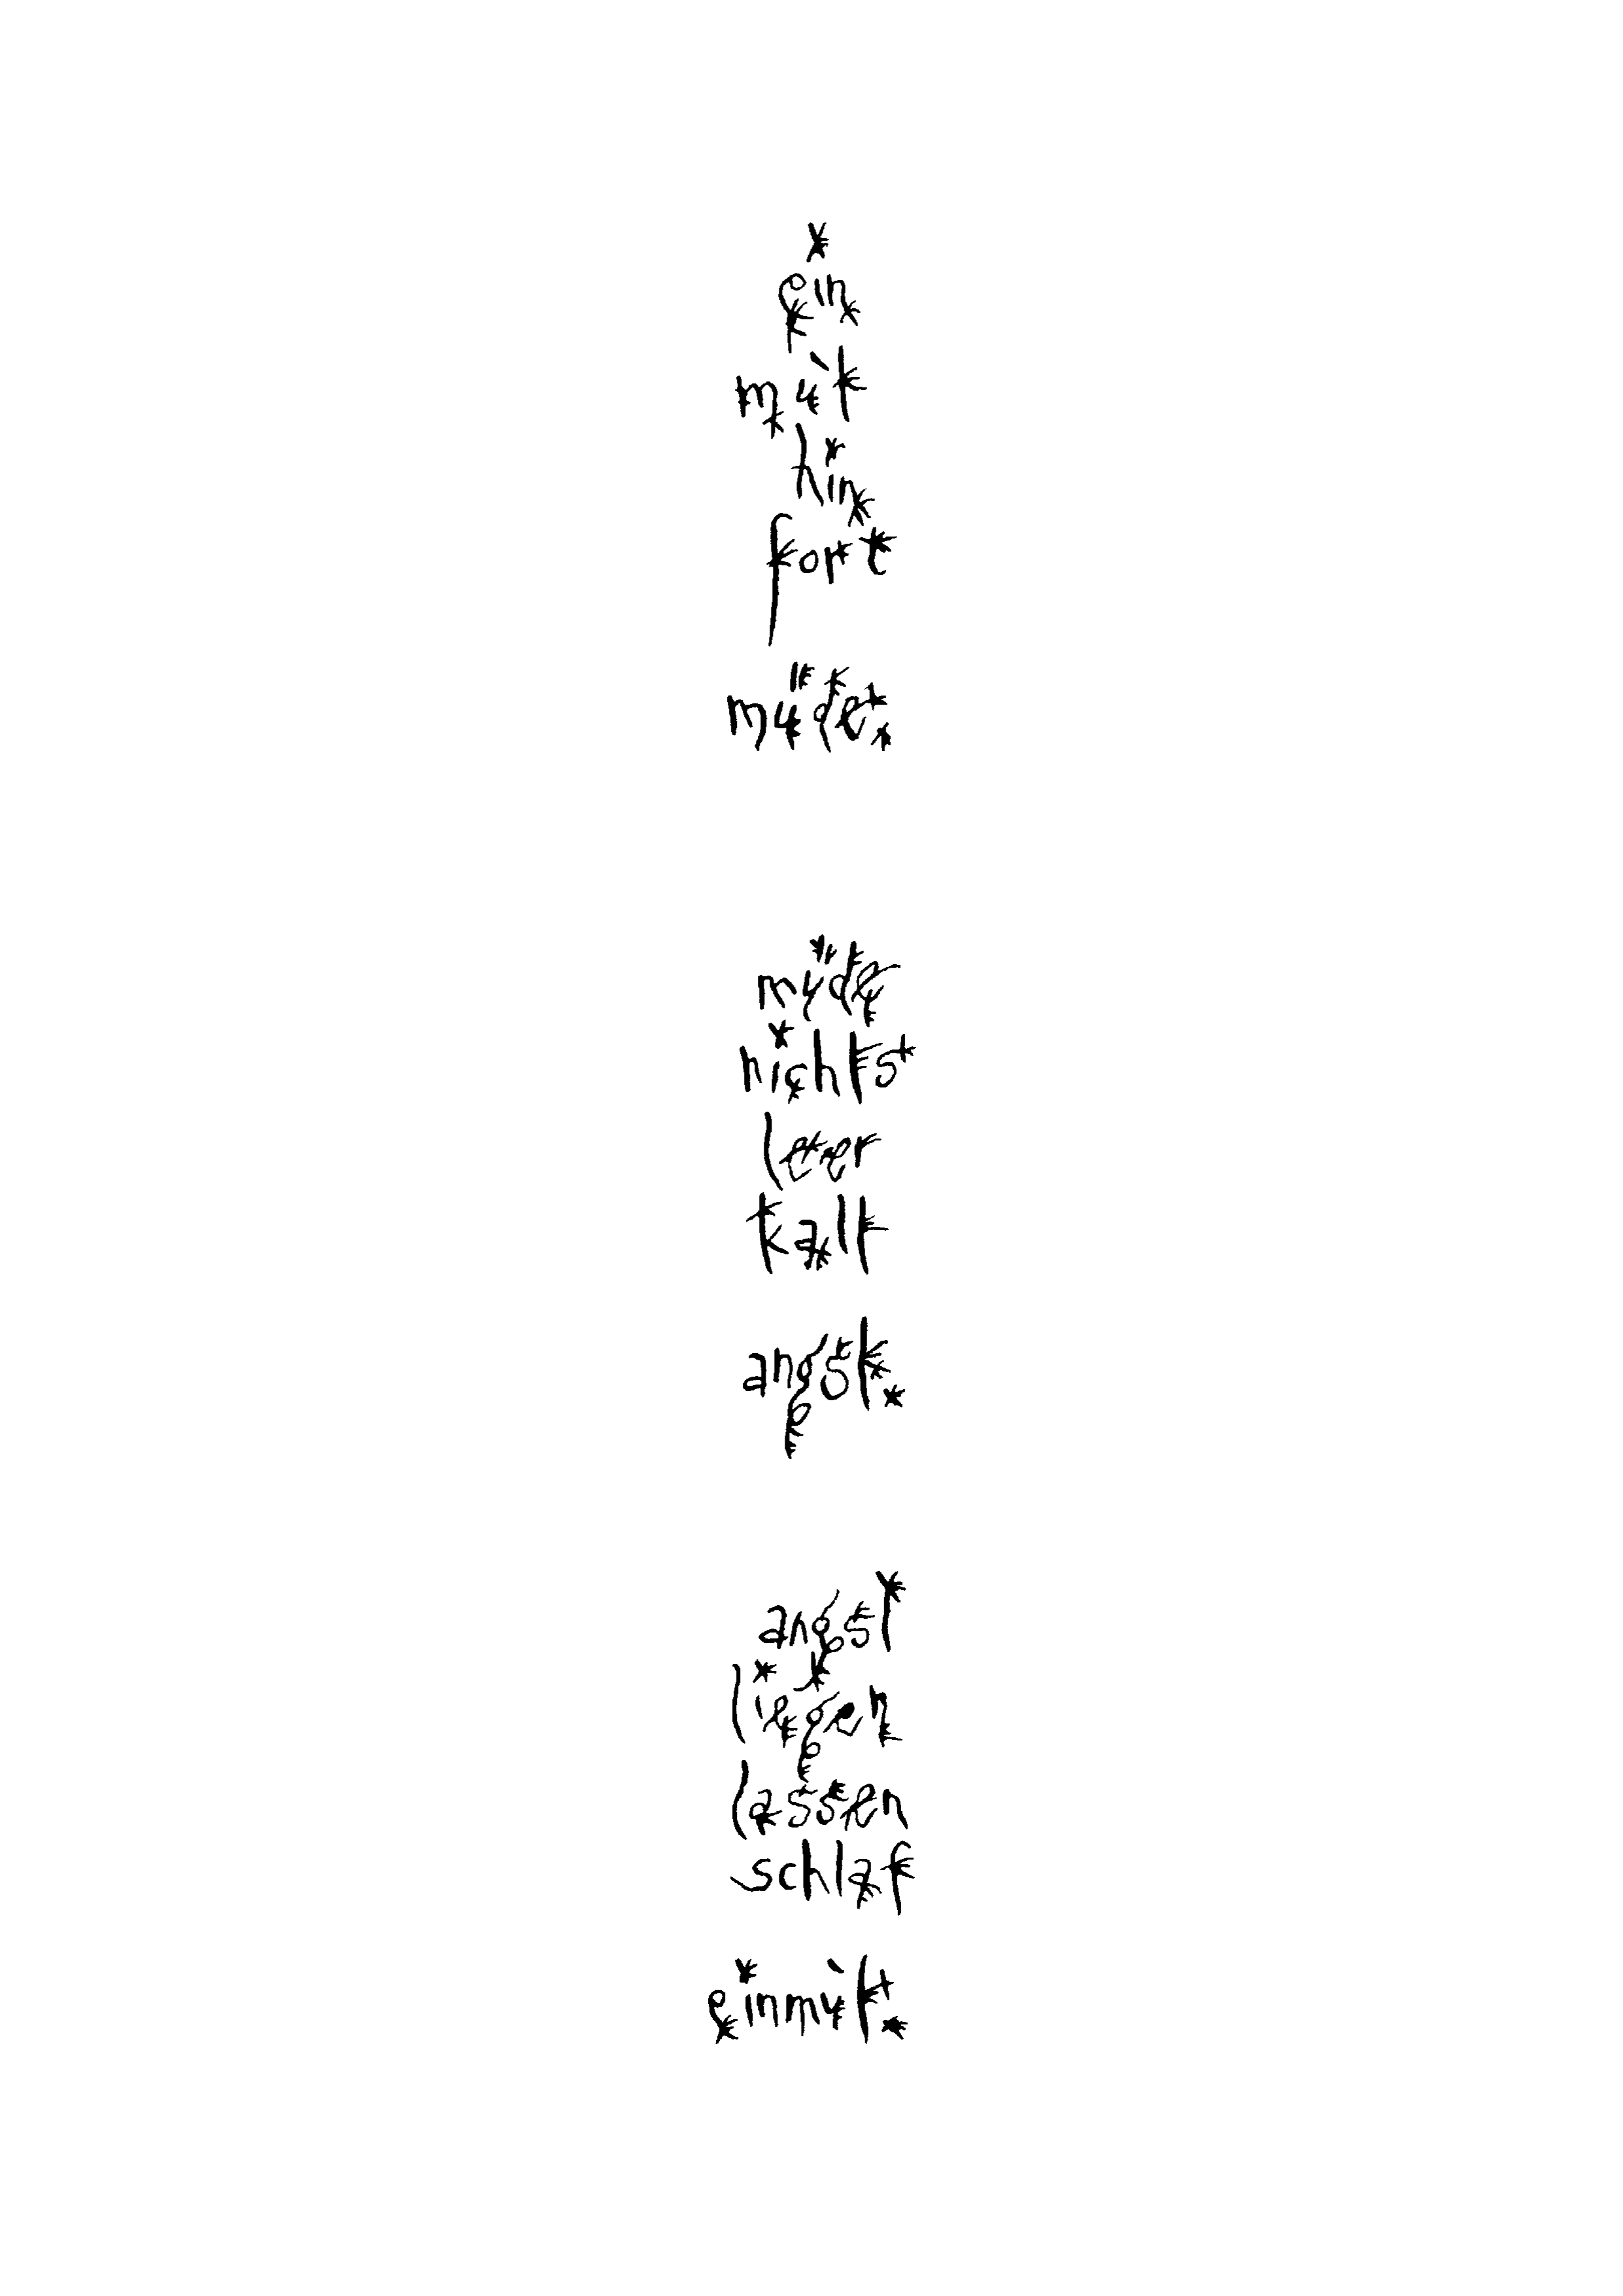 ein
mùt
hin
fort
müde.
müde
nichts
leer
kalt
angst.
angst
liegen
lassen
schlaf
einmùt.